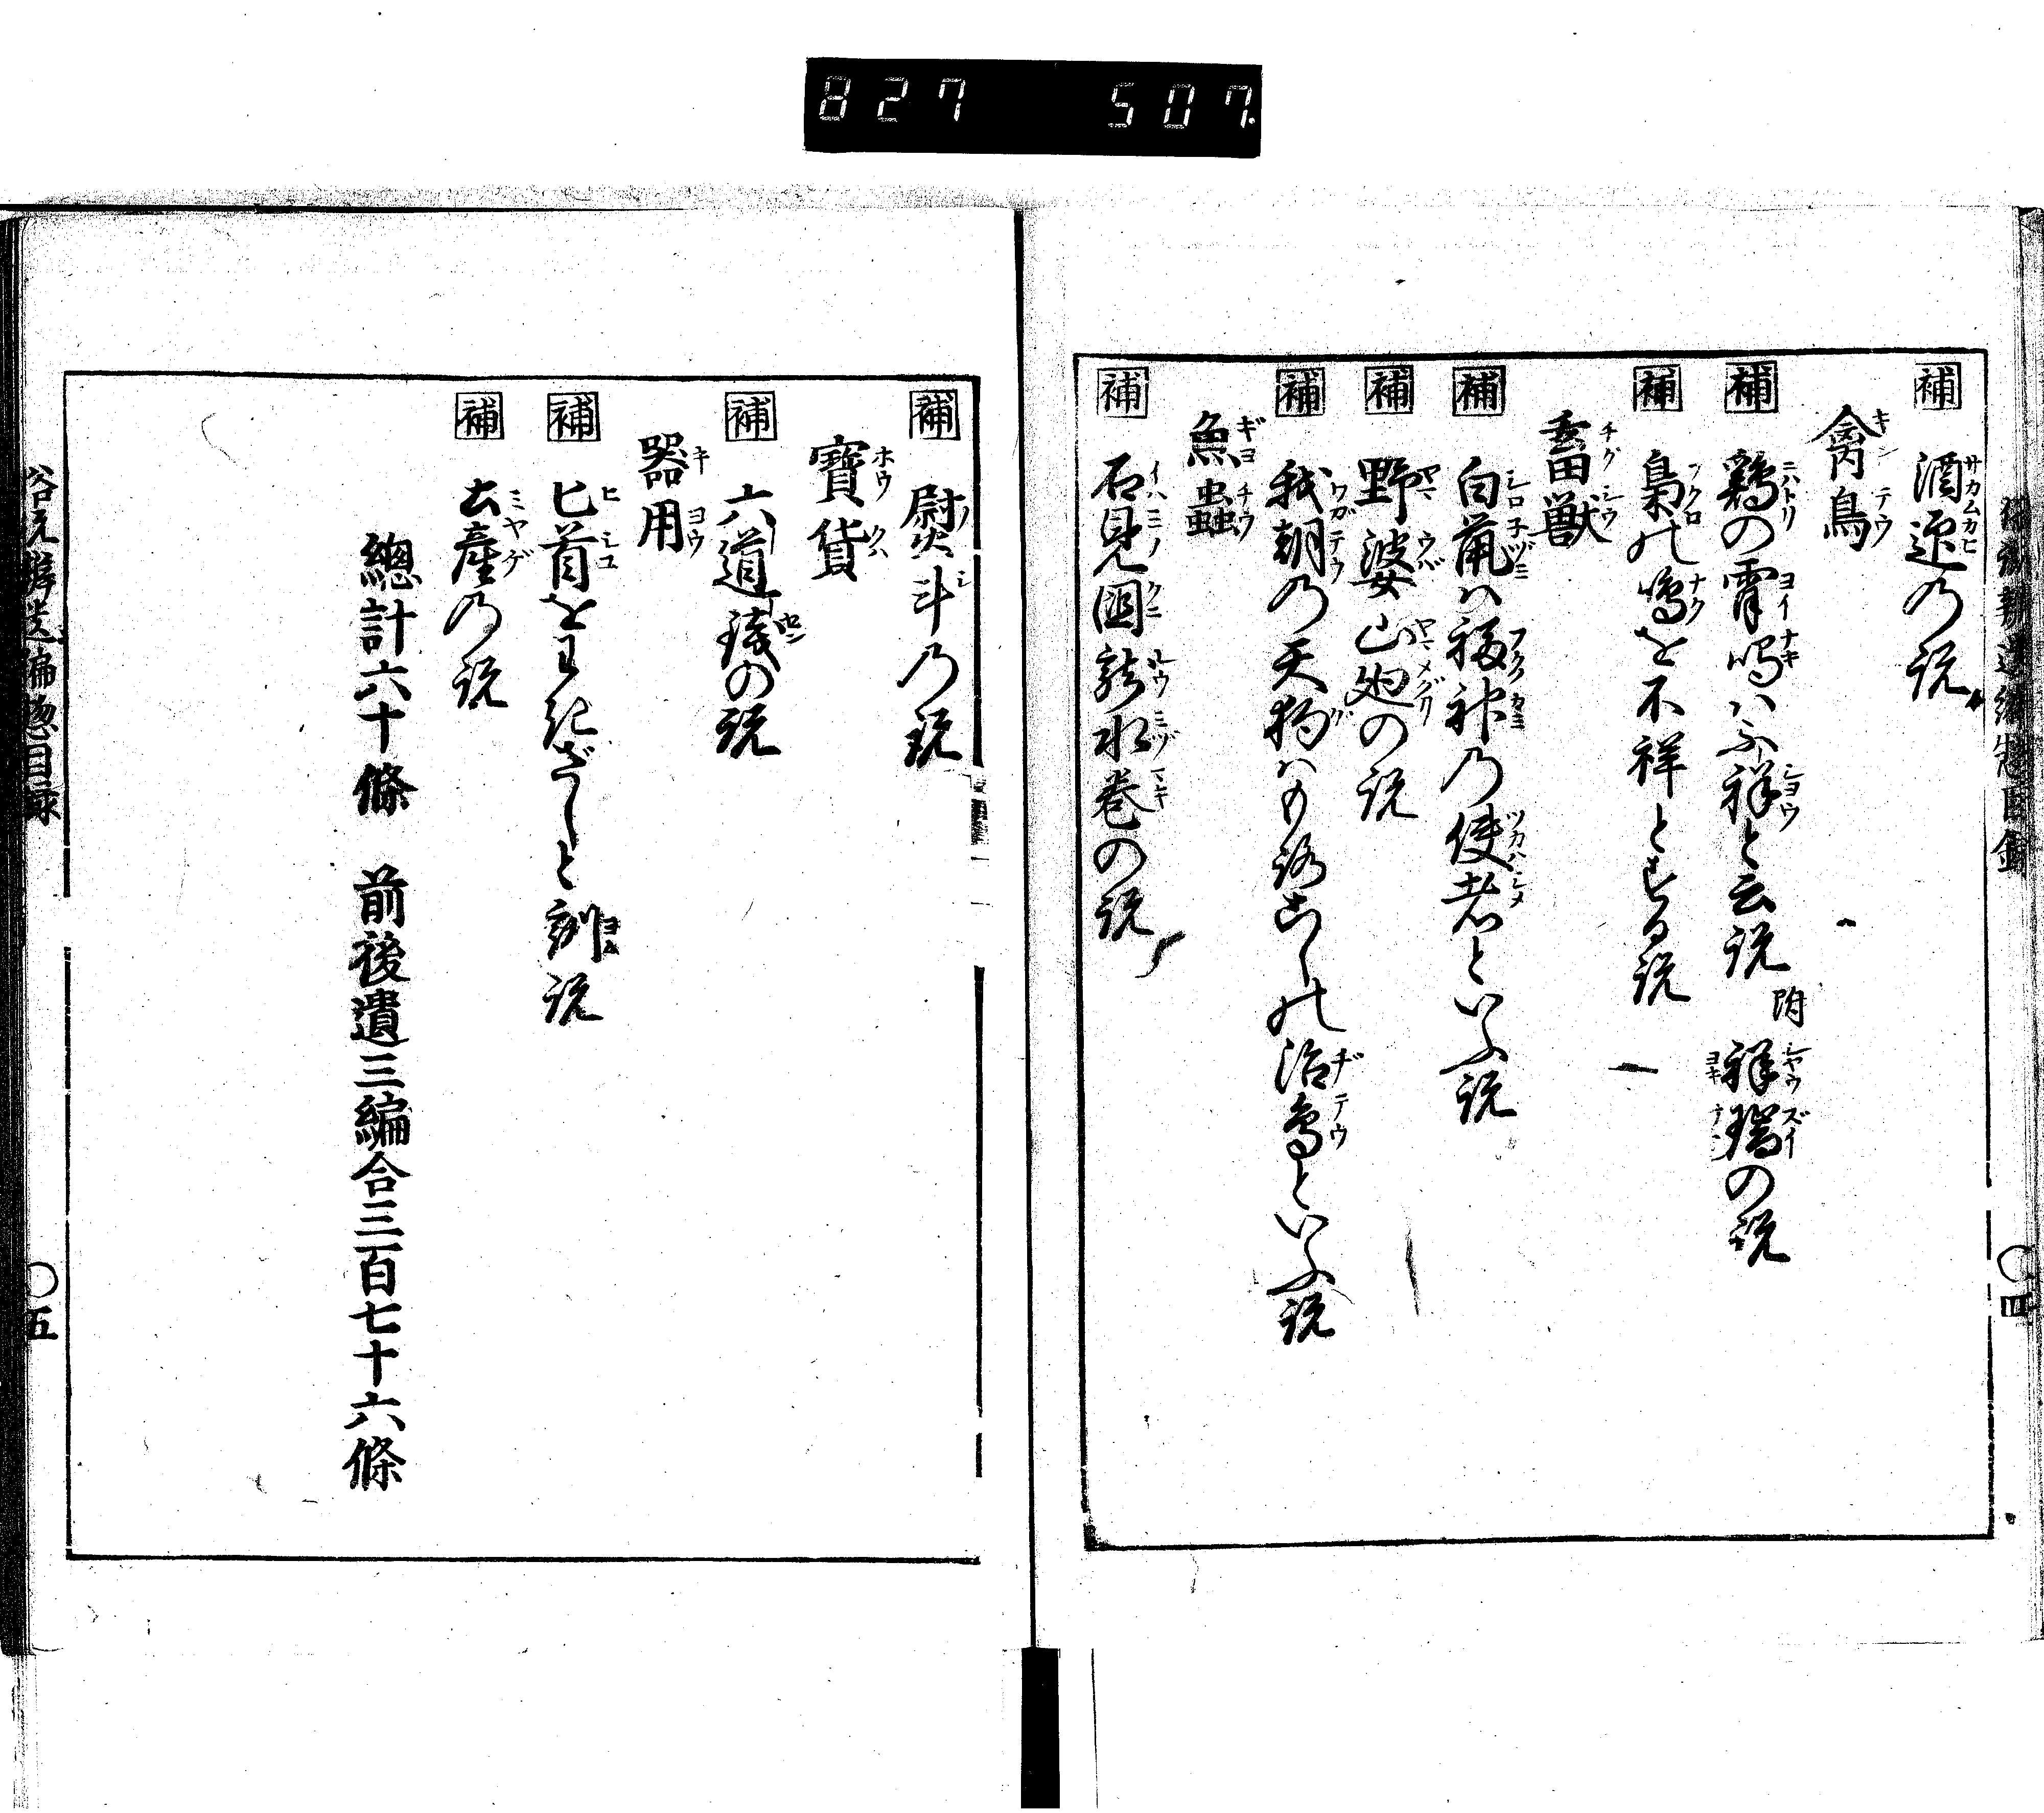 827 507.
補 酒迎乃説
禽鳥
補 鶏の宵鳴ハ不祥と云説 附 祥瑞の説
補 梟の鳴を不祥とする説
畜獣
補 白鼠ハ福神乃使者といふ説
補 野婆山廻の説
補 我朝乃天狗ハもろこしの治鳥といふ説
魚蟲
補 石見国龍水巻の説
四
補 熨斗乃説
寶貨
補 六道錢の説
器用
補 匕首をわきざしと訓説
補 土産乃説
總計六十條 前後遺三編合三百七十六條
五